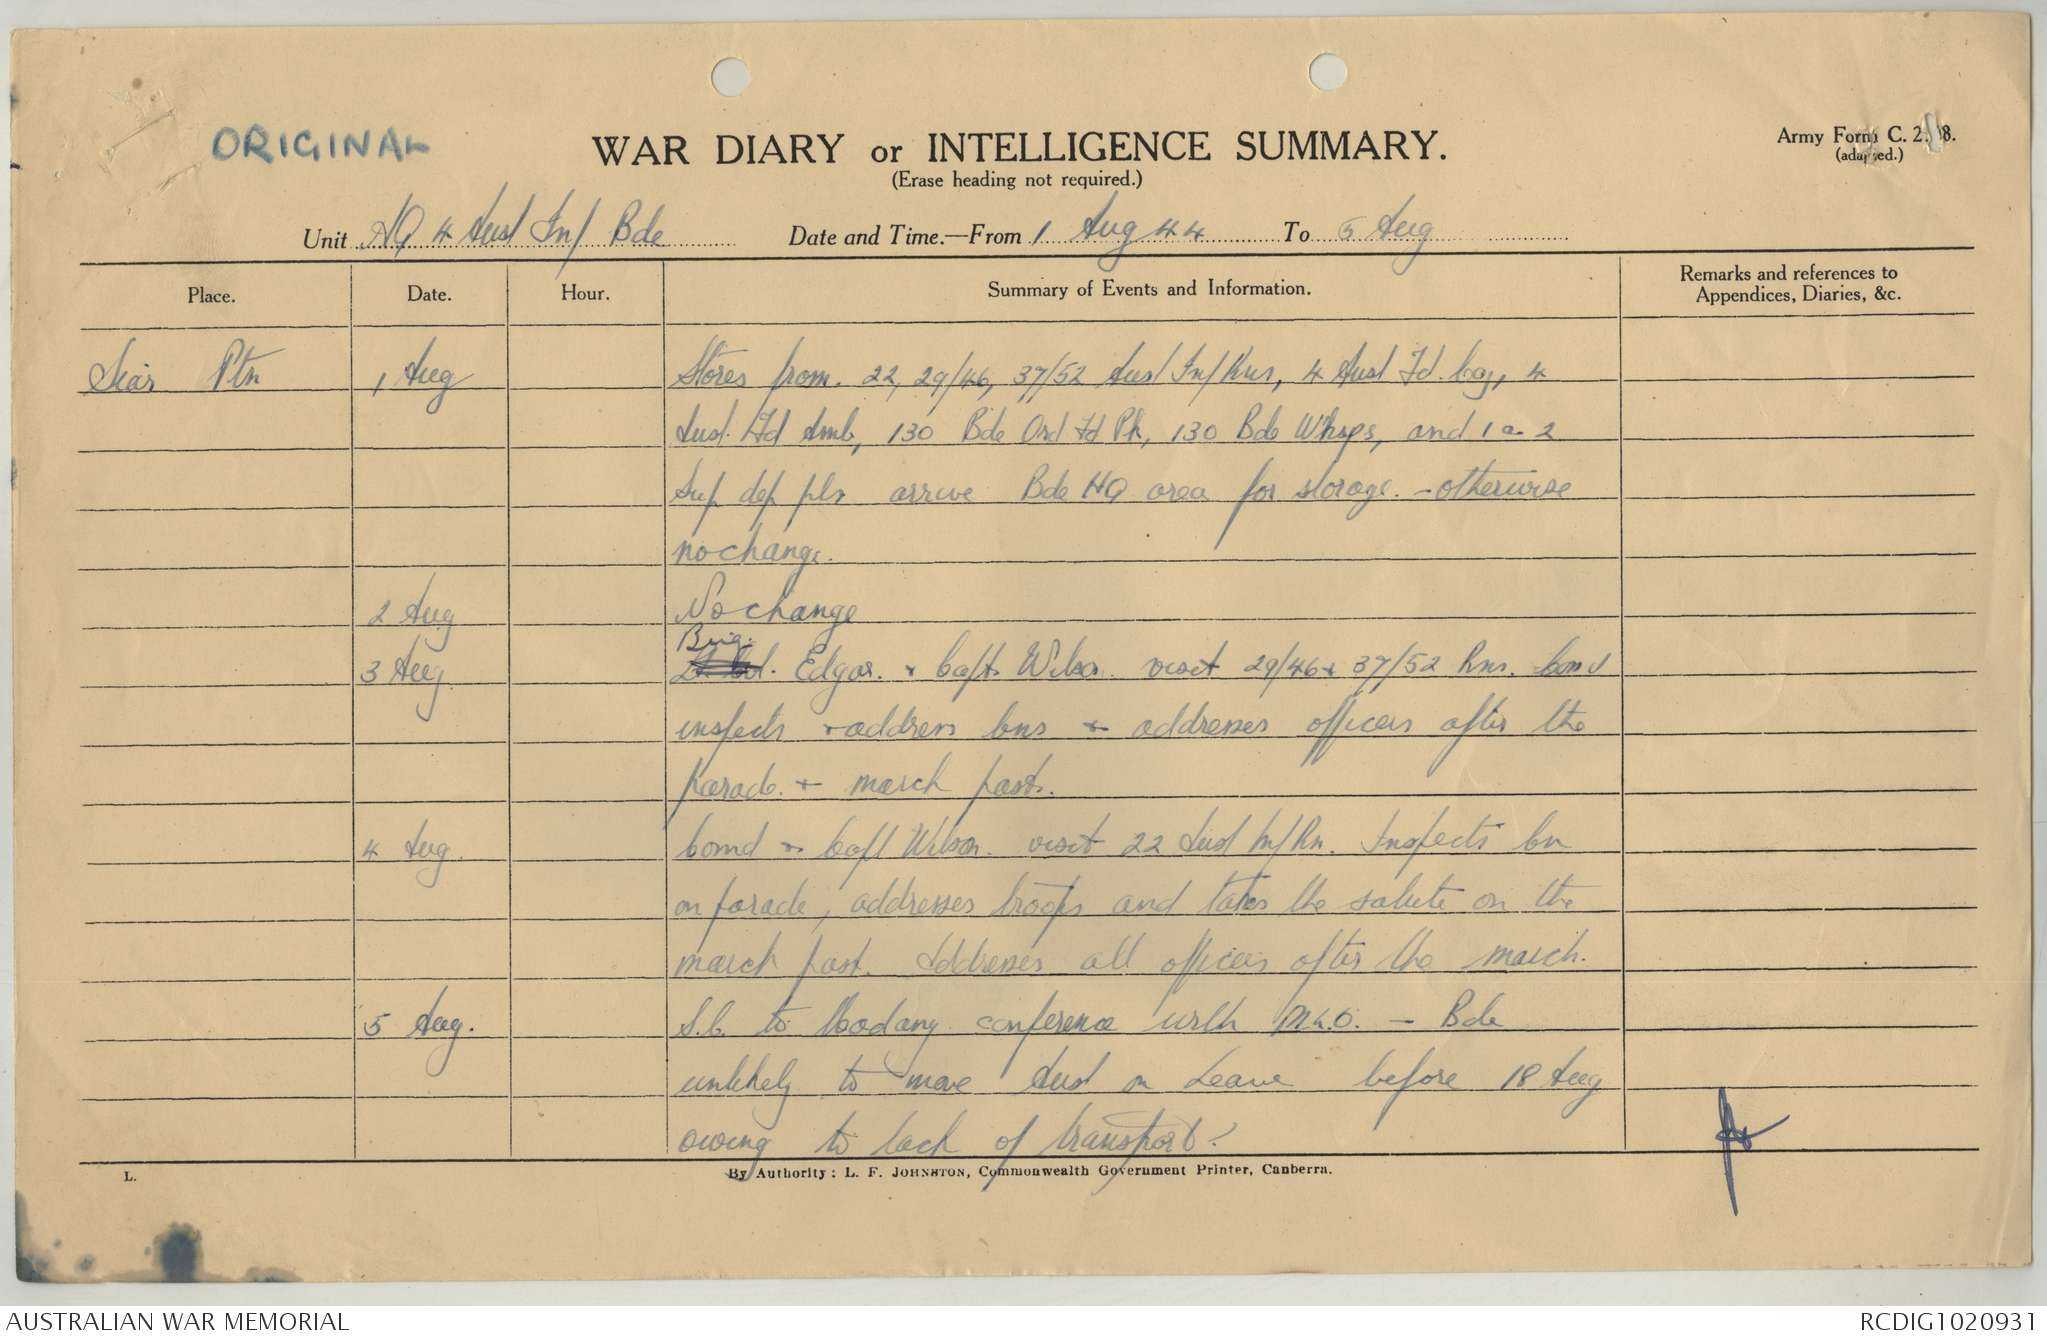 ORIGINAL
WAR DIARY or INTELLIGENCE SUMMARY.
(Erase heading not required.)
Army Form C. 2118.
(adapted.)
Unit HQ 4 Aust Inf Bde Date and Time.—From 1 Aug 44 To 5 Aug
Place. Date. Hour. Summary of Events and Information. Remarks and references to Appendices, Diaries, &c.
Siar Ptn 1 Aug Stores from 22, 29/46, 37/52 Aust Inf Bns, 4 Aust Fd Coy, 4
Aust Fd Amb, 130 Bde Ord Fd Pk, 130 Bde Wksps, and 1 & 2
Sup dep pls arrive Bde HQ area for storage. - otherwise
no change.
2 Aug No change
3 Aug Brig. Edgar & Capt Wilson visit 29/46 & 37/52 Bns. Comd
inspects & address bns & addresses officers after the
parade & march past.
4 Aug. Comd & Capt Wilson visit 22 Aust Inf Bn. Inspects bn
on parade, addresses troops and takes the salute on the
march past. Addresses all officers after the march.
5 Aug. S.C. to Madang conference with M.L.O. - Bde
unlikely to move Aust on Leave before 18 Aug
owing to lack of transport.
L.
By Authority: L. F. JOHNSTON, Commonwealth Government Printer, Canberra.
AUSTRALIAN WAR MEMORIAL
RCDIG1020931